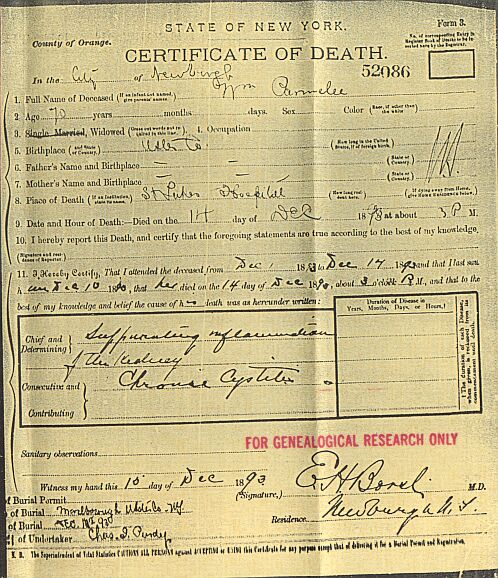 STATE OF NEW YORK.
Form 3.
County of Orange.
No. of corresponding Entry in Register Book of Deaths to be inserted here by the Registrar.
CERTIFICATE OF DEATH.
52086
In the City of Newburgh
1. Full Name of Deceased (If an Infant not named, give parents' names.) Wm Parmelee
2. Age 70 years months days. Sex Color (Race, if other than the white)
3. Single Married, Widowed (Cross out words not required in this line.) 4. Occupation
5. Birthplace (and State or Country.) Ulster Co How long in the United States, if of foreign birth.
6. Father's Name and Birthplace — — (State or Country)
7. Mother's Name and Birthplace — — (State or Country.)
8. Place of Death (If an Institution, state its name.) St Lukes Hospital How long resident here. (If dying away from Home, give Home Residence below.)
9. Date and Hour of Death:—Died on the 14 day of Dec 18 at about 3 P M.
10. I hereby report this Death, and certify that the foregoing statements are true according to the best of my knowledge.
(Signature and residence of Reporter.)
11. I Hereby Certify, That I attended the deceased from Dec 1 18 to Dec 14 and that I last saw
h Dec 10 that he died on the 14 day of Dec 18 about 3 o'clock P M., and that to the
best of my knowledge and belief the cause of h death was as hereunder written:
Duration of Disease in
Years, Months, Days, or Hours.‡
Chief and Determining Suppurating inflammation
of the Kidney
Consecutive and Contributing Chronic Cystitis
‡ The duration of each Disease, when given, is reckoned from its commencement until death.
FOR GENEALOGICAL RESEARCH ONLY
Sanitary observations
Witness my hand this 15 day of Dec 1893
(Signature,) M.D.
of Burial Permit
of Burial Marlborough Ulster Co. NY
Residence Newburgh N. Y.
of Burial DEC
of Undertaker Chas. J. Purdy
N. B. The Superintendent of Vital Statistics CAUTIONS ALL PERSONS against ACCEPTING or USING this Certificate for any purpose except that of delivering it for a Burial Permit and Registration.